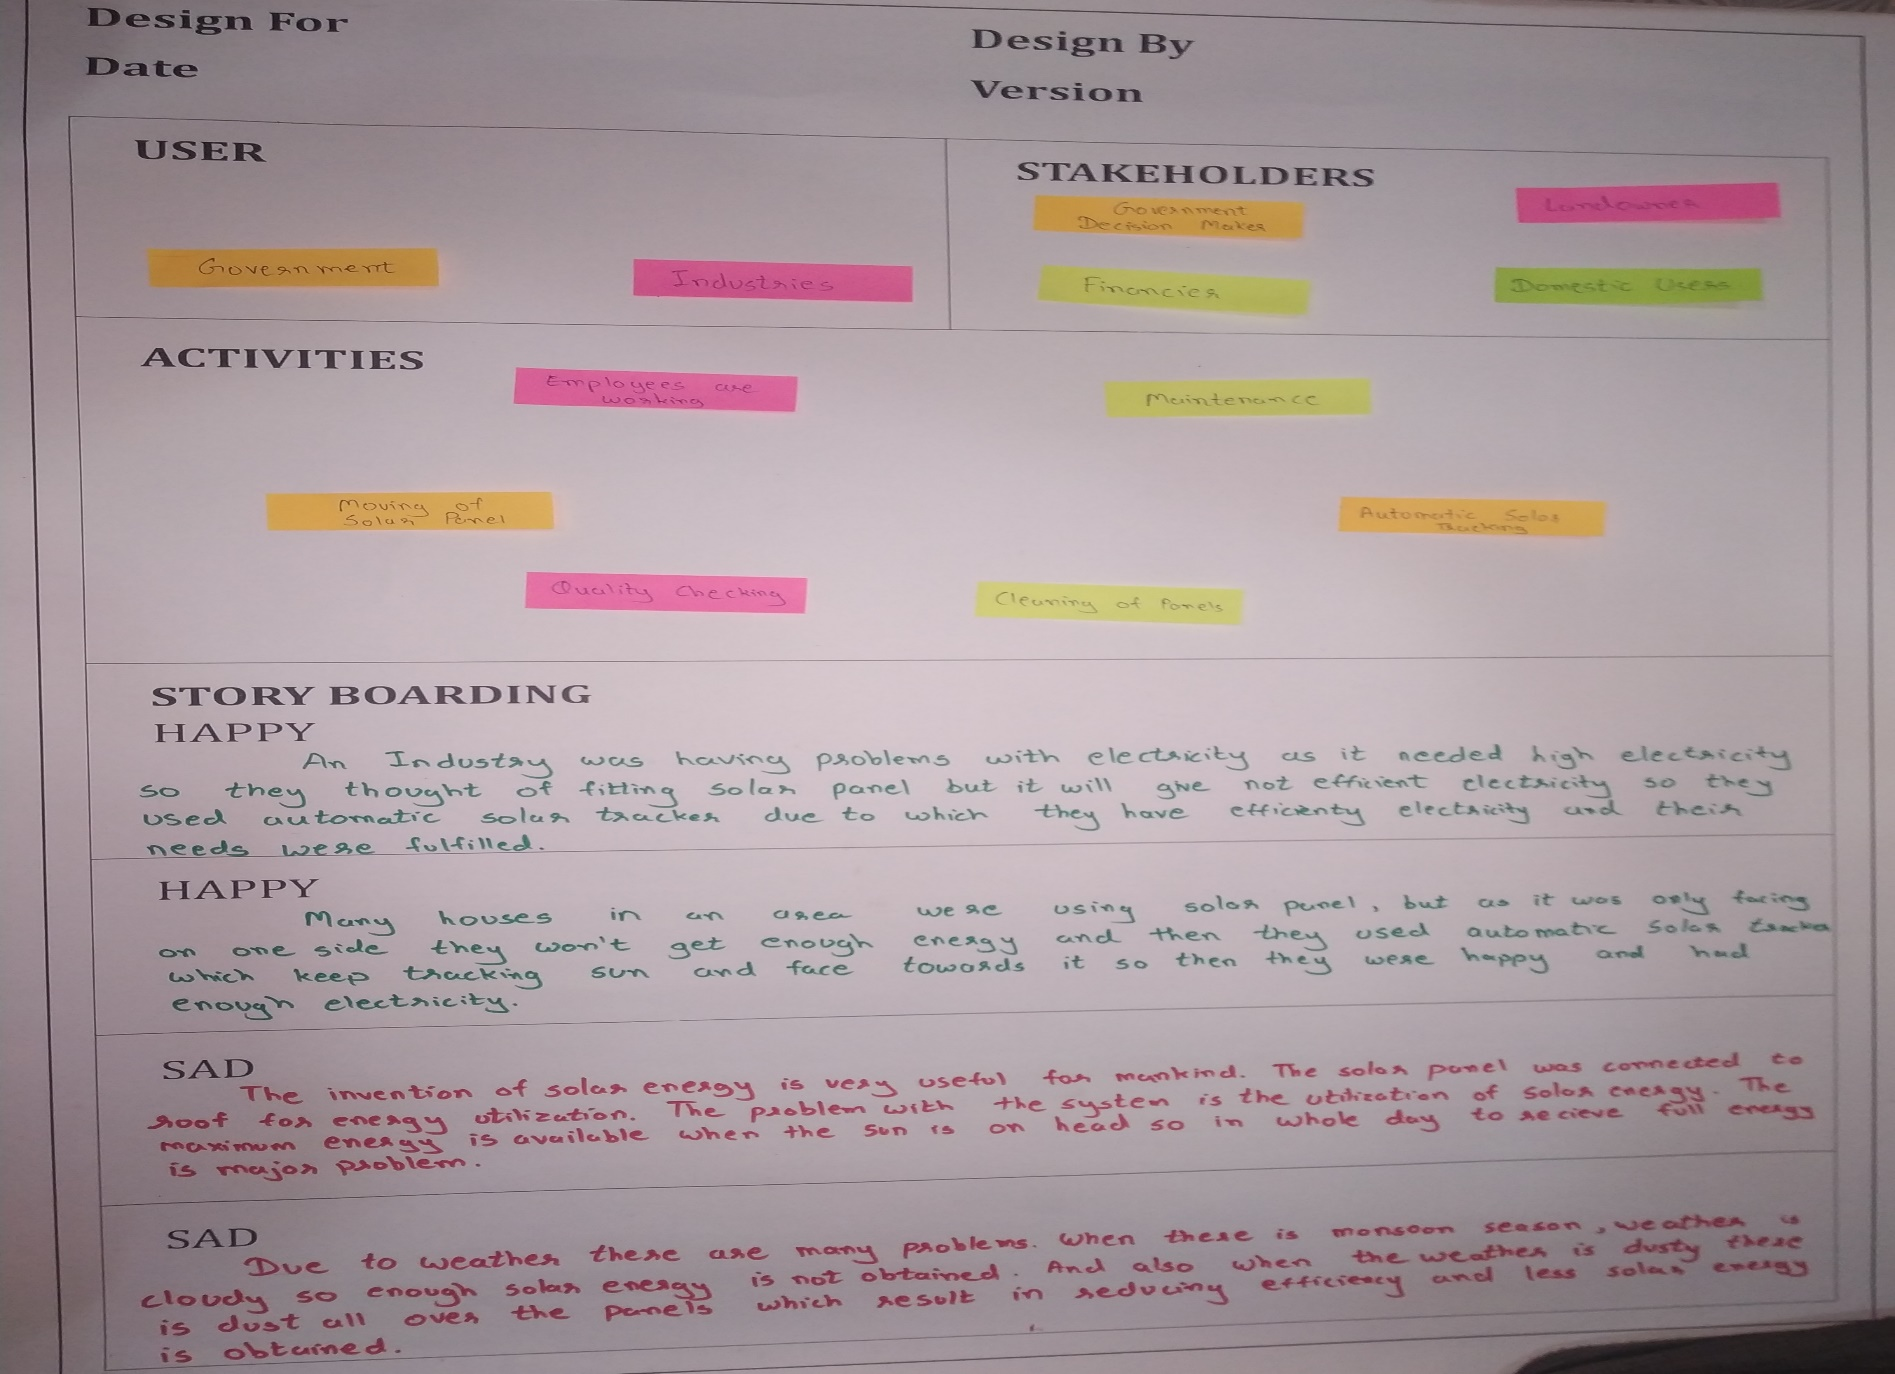 Design For
Design By
Date
Version
USER
Government
Industries
STAKEHOLDERS
Government
Decision Maker
Landowner
Financier
Domestic Users
ACTIVITIES
Employees are
working
Maintenance
Moving of
Solar Panel
Automatic Solar
Tracking
Quality Checking
Cleaning of Panels
STORY BOARDING
HAPPY
An Industry was having problems with electricity as it needed high electricity
so they thought of fitting solar panel but it will give not efficient electricity so they
used automatic solar tracker due to which they have efficienty electricity and their
needs were fulfilled.
HAPPY
Many houses in an area were using solar panel, but as it was only facing
on one side they won't get enough energy and then they used automatic solar tracker
which keep tracking sun and face towards it so then they were happy and had
enough electricity.
SAD
The invention of solar energy is very useful for mankind. The solar panel was connected to
roof for energy utilization. The problem with the system is the utilization of solar energy. The
maximum energy is available when the sun is on head so in whole day to recieve full energy
is major problem.
SAD
Due to weather there are many problems. When there is monsoon season, weather is
cloudy so enough solar energy is not obtained. And also when the weather is dusty there
is dust all over the panels which result in reducing efficiency and less solar energy
is obtained.